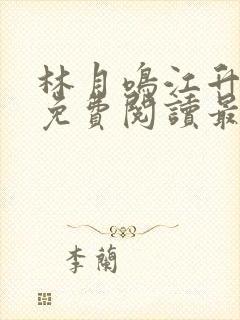 林月鳴江升
免費閱讀最
李蘭